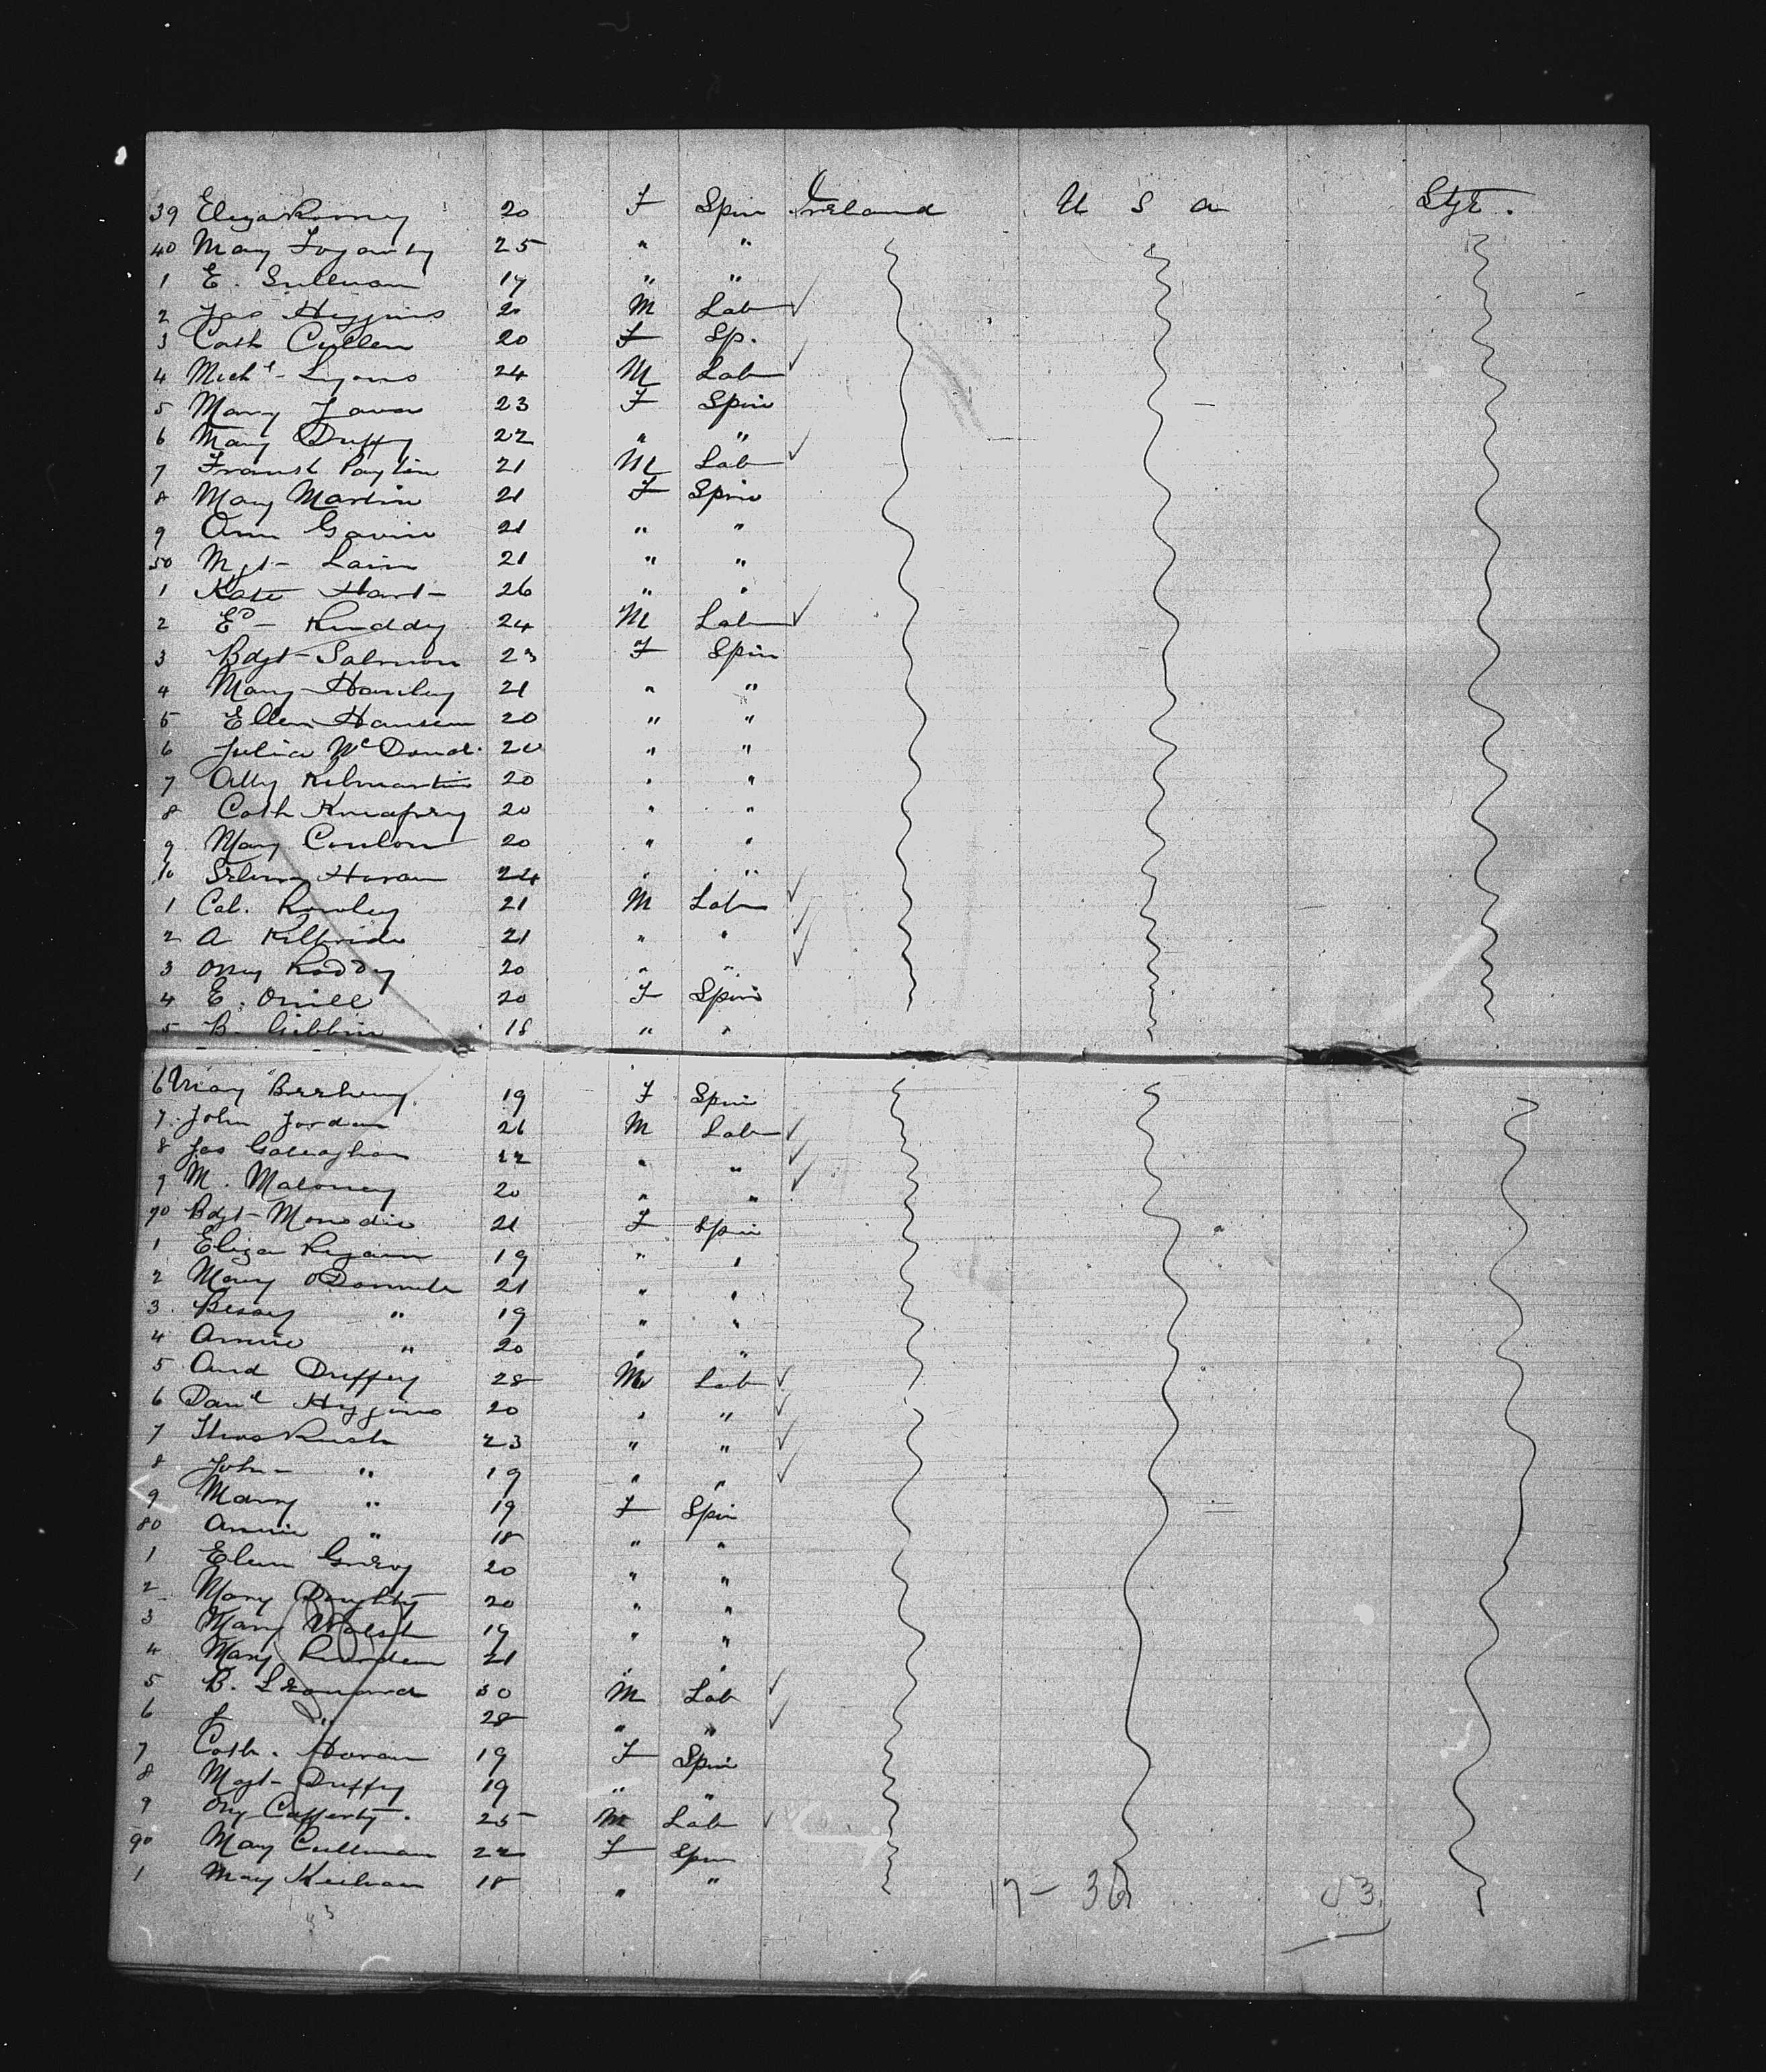 39 Eliza Romney 20 F Spin Ireland U S A Stge.
40 Mary Fogarty 25 " "
1 E. Sullivan 19 " "
2 Jas Higgins 20 M Lab ✓
3 Cath Cullen 20 F Sp.
4 Michl Lyons 24 M Lab ✓
5 Mary 23 F Spin
6 Mary Duffy 22 " "
7 21 M Lab ✓
8 Mary Martin 21 F Spin
9 Ann Gavin 21 " "
50 Mgt 21 " "
1 Kate Hart 26 " "
2 Ed Ruddy 24 M Lab ✓
3 Bdgt Salmon 23 F Spin
4 Mary Hanley 21 " "
5 Ellen 20 " "
6 Julia McDond. 20 " "
7 Ally Kilmartin 20 " "
8 Cath 20 " "
9 Mary Conlon 20 " "
10 Horan 24 " "
1 Cal. Rowley 21 M Lab ✓
2 A Kilbride 21 " " ✓
3 Ony Roddy 20 " " ✓
4 E. Oniell 20 F Spin
5 B. Gibbin 18 " "
6 Mary 19 F Spin
7 John Jordan 21 M Lab ✓
8 Jas Gallaghan 22 " " ✓
9 M. Maloney 20 " " ✓
70 Bdgt 21 F Spin
1 Eliza 19 " "
2 Mary ODonnell 21 " "
3 Bessy " 19 " "
4 Annie " 20 " "
5 And Duffey 28 M Lab ✓
6 Danl Higgins 20 " " ✓
7 Thos Rush 23 " " ✓
8 John " 19 " " ✓
9 Mary " 19 F Spin
80 Annie " 18 " "
1 Ellen 20 " "
2 Mary Doughty 20 " "
3 Mary Walsh 19 " "
4 Mary 21 " "
5 B. Leonard 30 M Lab ✓
6 J " 28 " " ✓
7 Cath. Horan 19 F Spin
8 Mgt Duffy 19 " "
9 Ony Cafferty. 25 M Lab ✓
90 Mary Cullinan 22 F Spin
1 Mary 18 " "
17 - 36 53